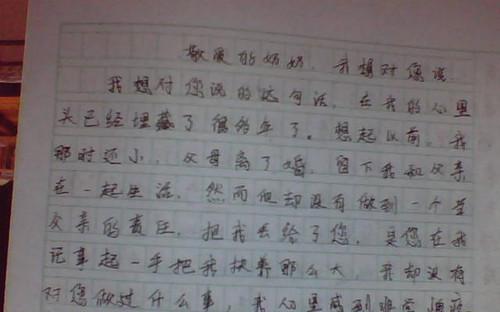 敬爱的奶奶，我想对您说
我想对您说的这句话，在我的心里
头已经埋藏了很多年了。想起以前，我
那时还小，父母离了婚，留下我和父亲
在一起生活，然而他却没有做到一个当
父亲的责任，把我丢给了您，是您在我
记事起一手把我扶养那么大，我却没有
对您做过什么事，我心里感到非常